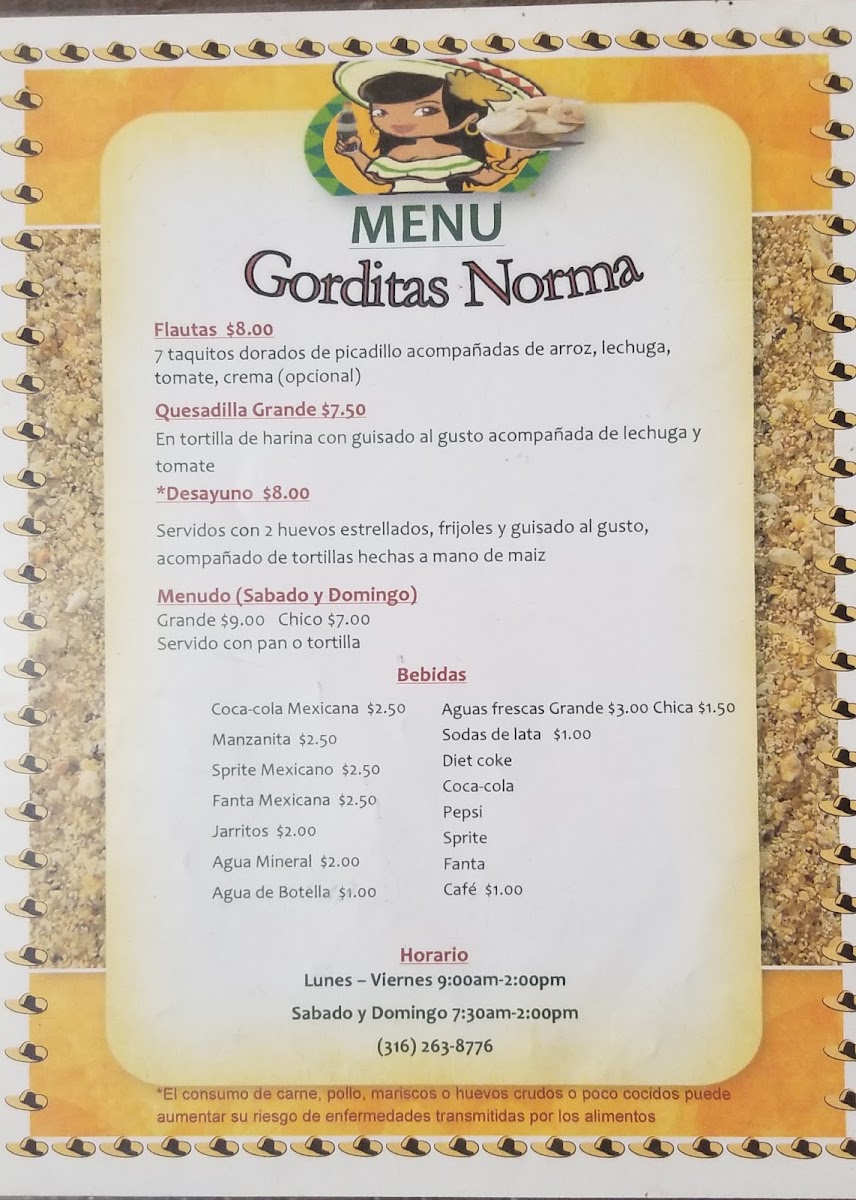 MENU
Gorditas Norma
Flautas $8.00
7 taquitos dorados de picadillo acompañadas de arroz, lechuga,
tomate, crema (opcional)
Quesadilla Grande $7.50
En tortilla de harina con guisado al gusto acompañada de lechuga y
tomate
*Desayuno $8.00
Servidos con 2 huevos estrellados, frijoles y guisado al gusto,
acompañado de tortillas hechas a mano de maiz
Menudo (Sabado y Domingo)
Grande $9.00 Chico $7.00
Servido con pan o tortilla
Bebidas
Coca-cola Mexicana $2.50
Manzanita $2.50
Sprite Mexicano $2.50
Fanta Mexicana $2.50
Jarritos $2.00
Agua Mineral $2.00
Agua de Botella $1.00
Aguas frescas Grande $3.00 Chica $1.50
Sodas de lata $1.00
Diet coke
Coca-cola
Pepsi
Sprite
Fanta
Café $1.00
Horario
Lunes – Viernes 9:00am-2:00pm
Sabado y Domingo 7:30am-2:00pm
(316) 263-8776
*El consumo de carne, pollo, mariscos o huevos crudos o poco cocidos puede
aumentar su riesgo de enfermedades transmitidas por los alimentos